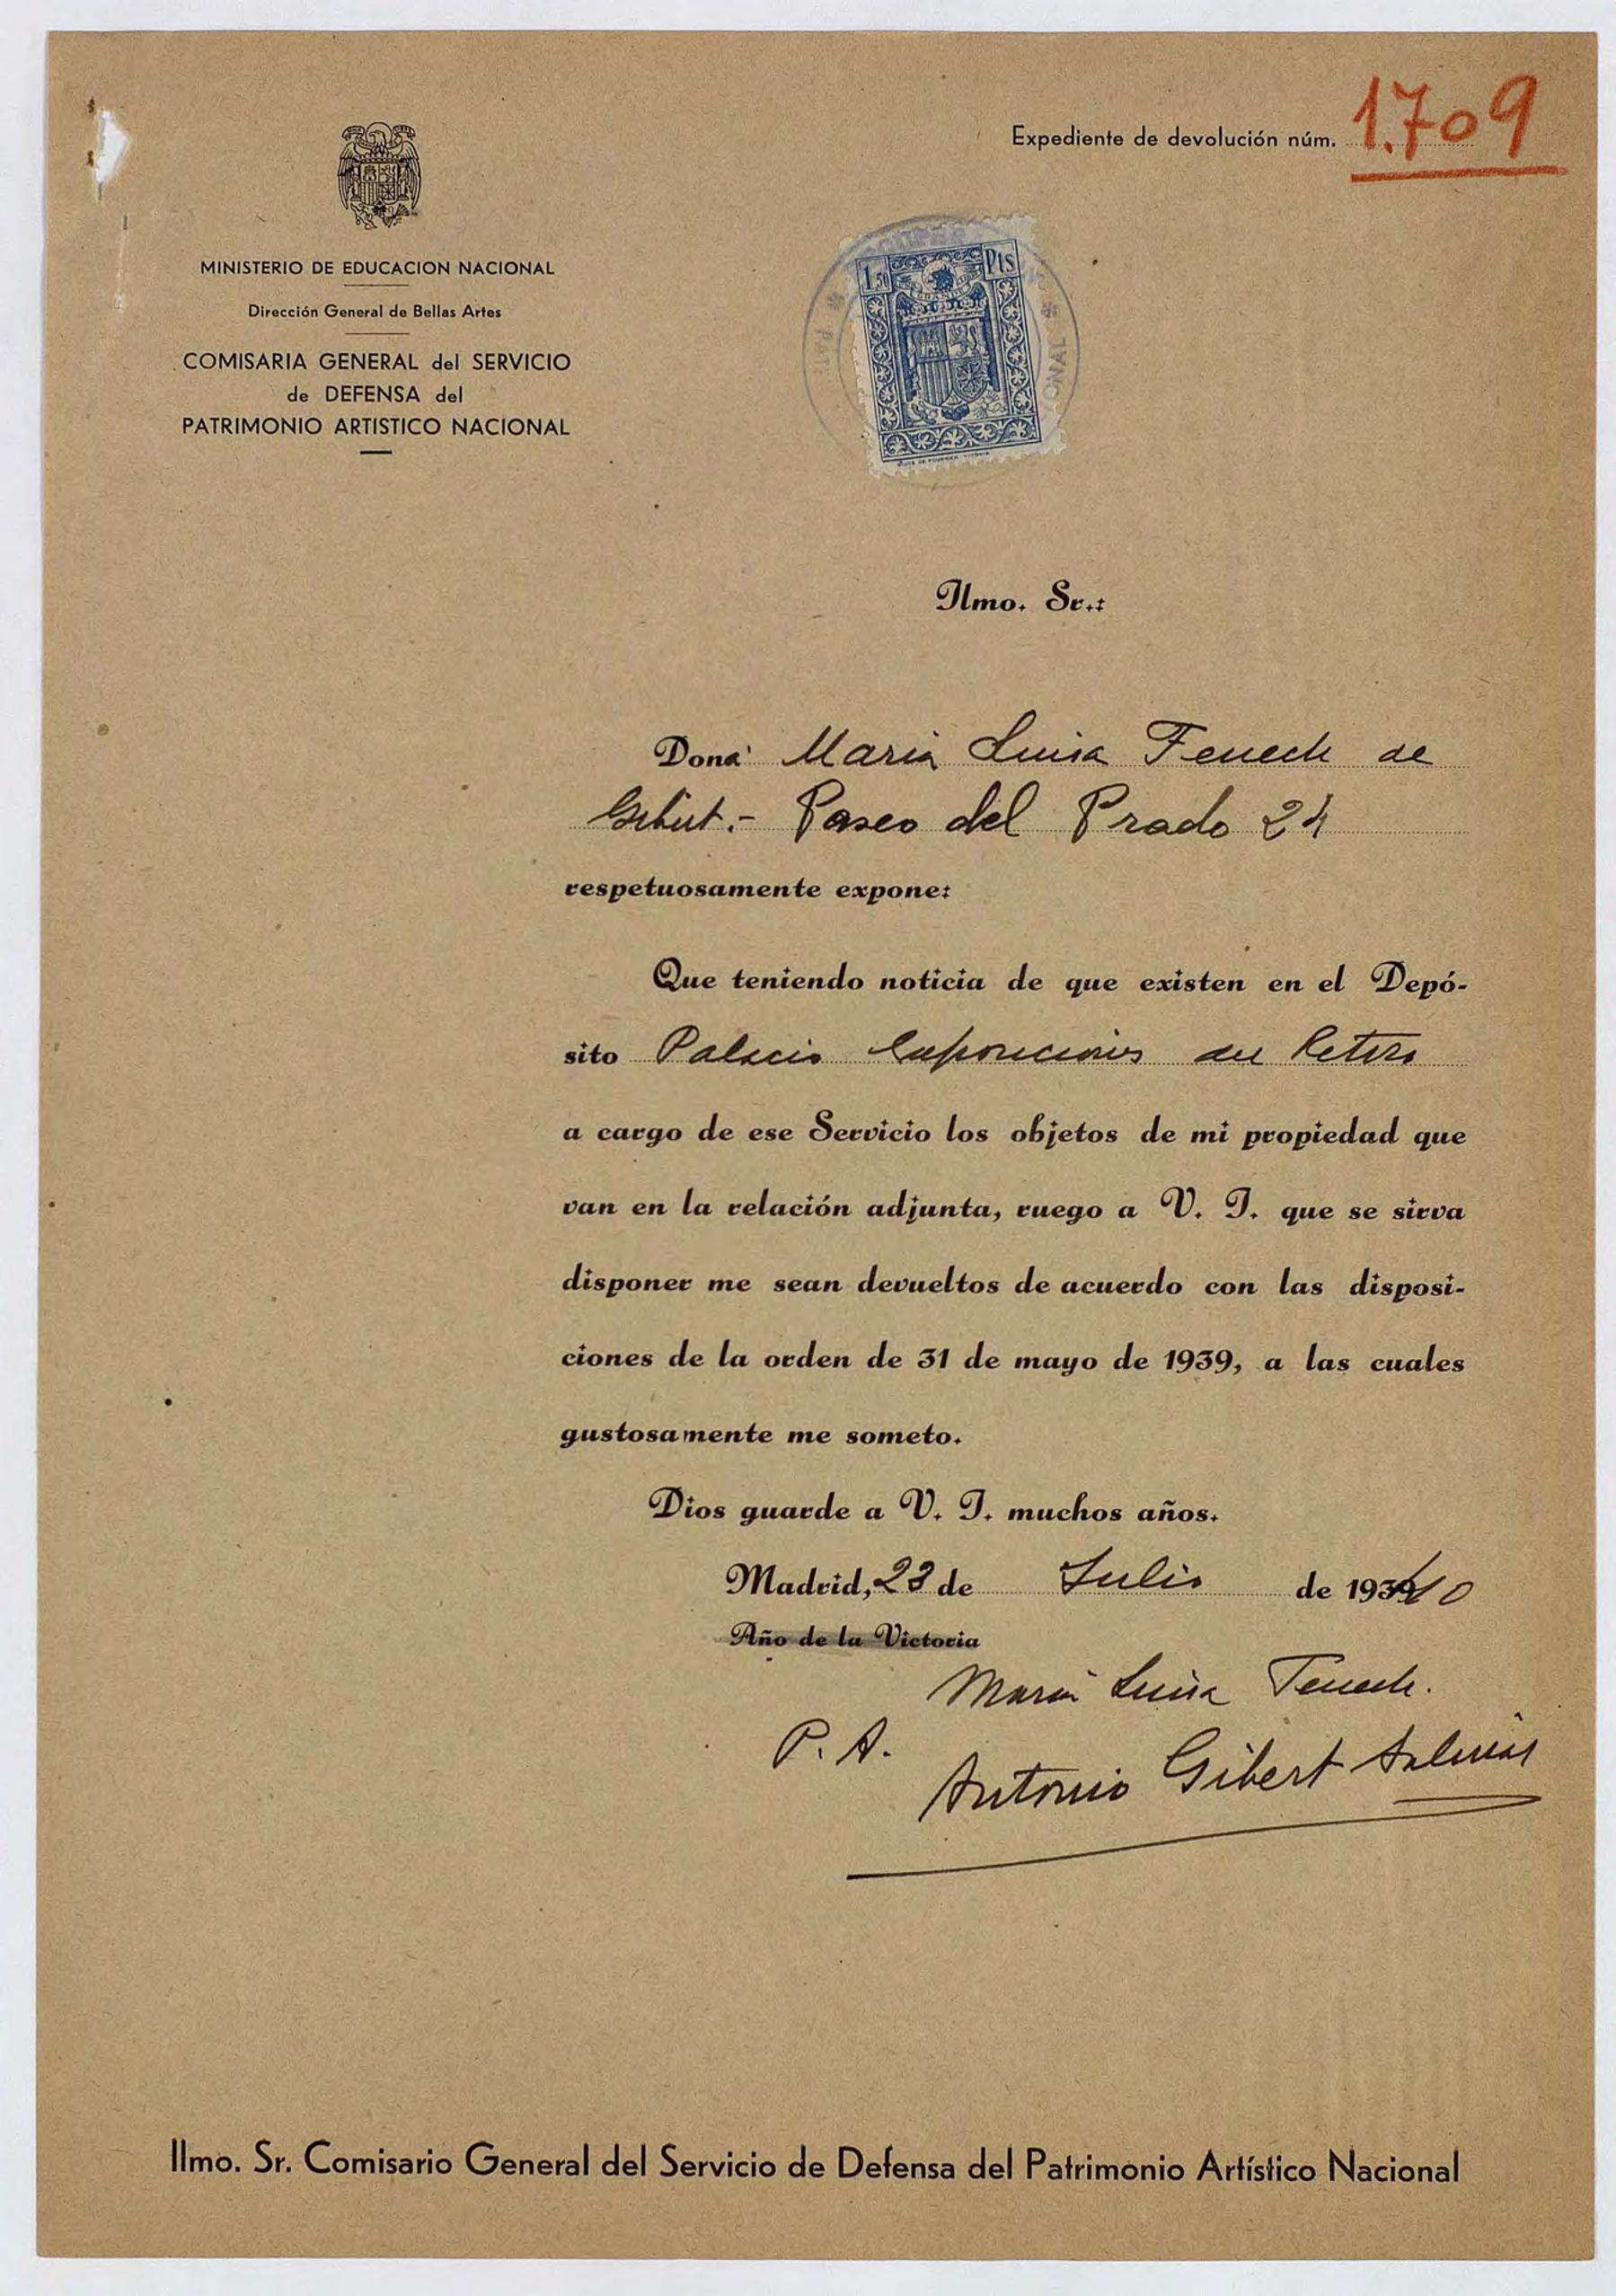 Expediente de devolución núm. 1.709
MINISTERIO DE EDUCACION NACIONAL
Dirección General de Bellas Artes
COMISARIA GENERAL del SERVICIO
de DEFENSA del
PATRIMONIO ARTISTICO NACIONAL
1,50 Pts
Ilmo. Sr.:
Dona Maria Luisa Fenech de
Gibert.- Paseo del Prado 24
respetuosamente expone:
Que teniendo noticia de que existen en el Depó-
sito Palacio Exposiciones del Retiro
a cargo de ese Servicio los objetos de mi propiedad que
van en la relación adjunta, ruego a V. I. que se sirva
disponer me sean devueltos de acuerdo con las disposi-
ciones de la orden de 31 de mayo de 1939, a las cuales
gustosamente me someto.
Dios guarde a V. I. muchos años.
Madrid, 23 de Julio de 1940
Año de la Victoria
Maria Luisa Fenech.
P. A.
Antonio Gibert
Ilmo. Sr. Comisario General del Servicio de Defensa del Patrimonio Artístico Nacional